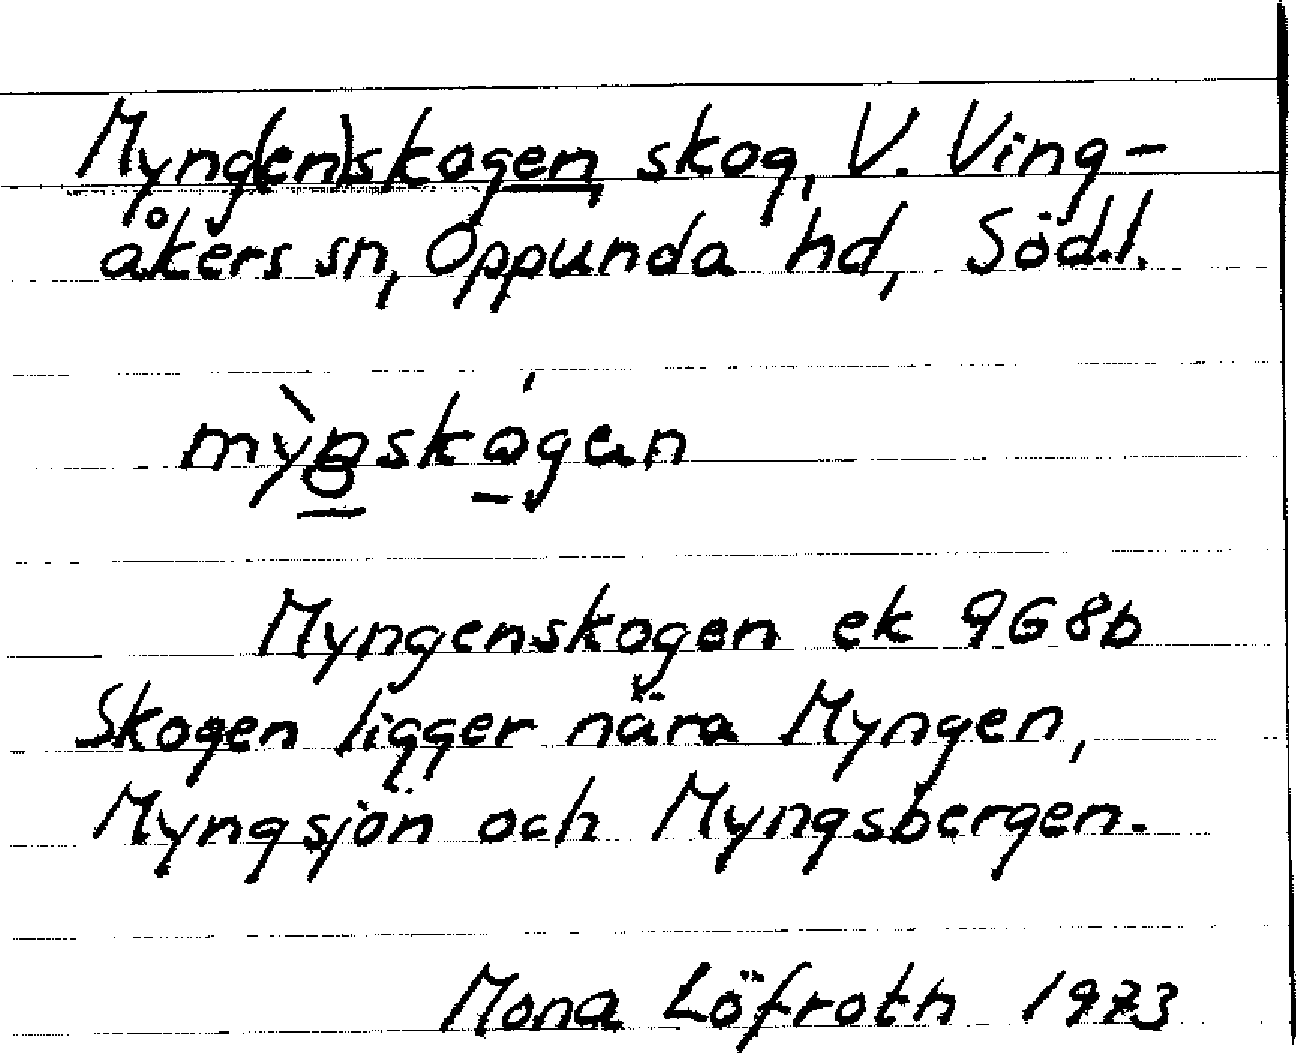 Myng(en)skogen, skog, V. Ving-
åkers sn, Oppunda hd, Södl.
Myngenskogen ek 9G8b
Skogen ligger nära Myngen,
Myngsjön och Myngsbergen.
Mona Löfroth 1973